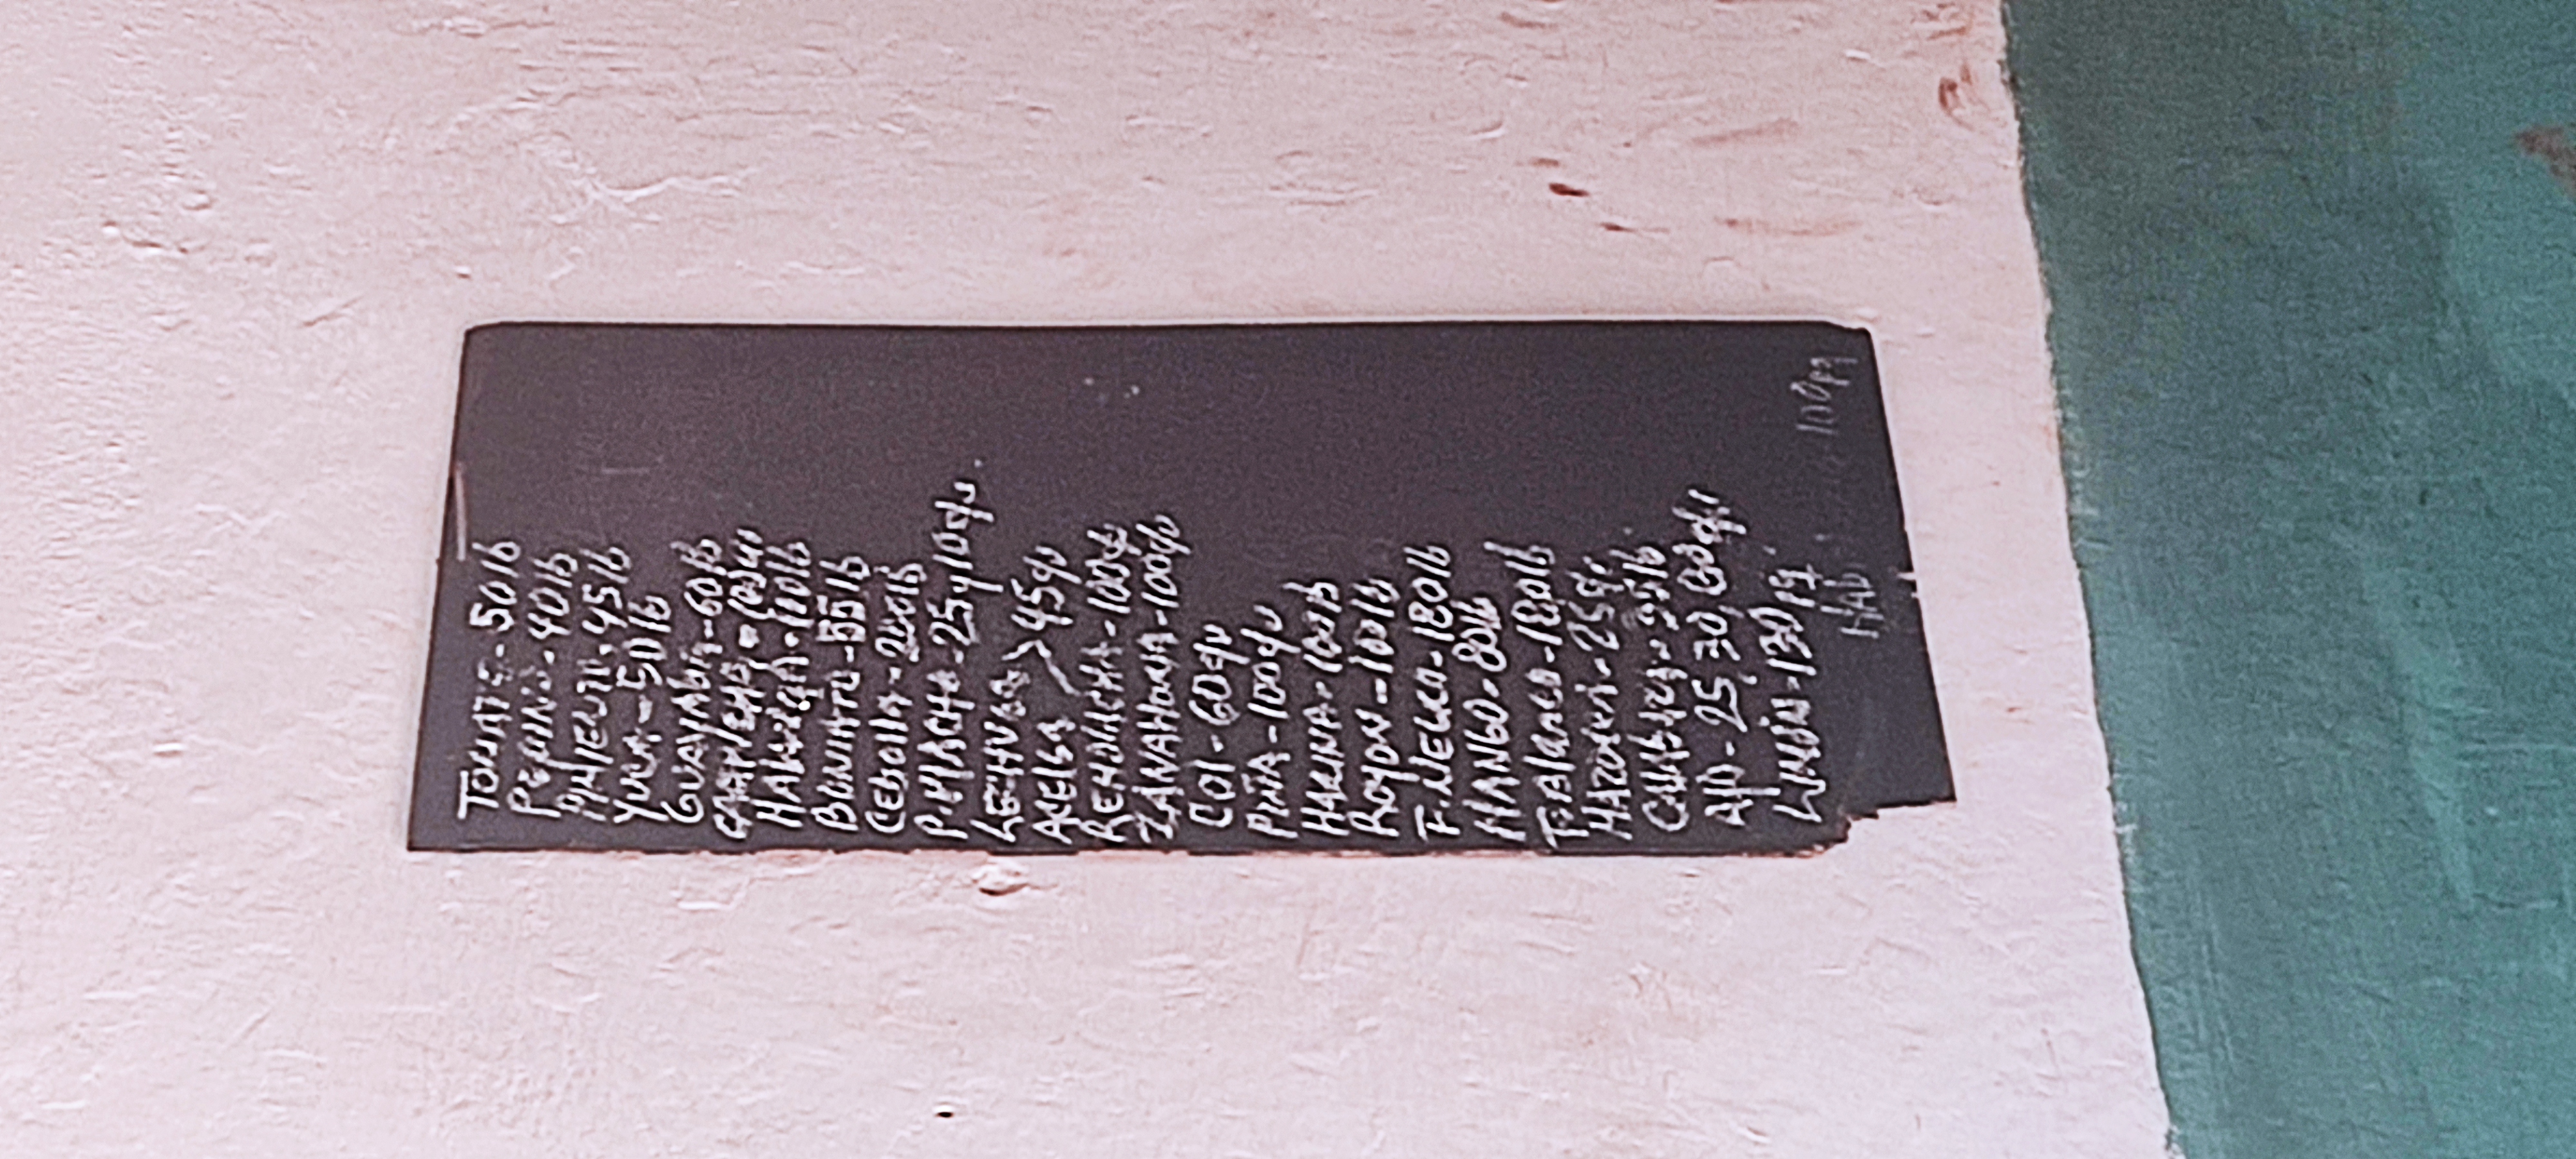 TOMATE - 50 lb
PEPINO - 40 lb
PIMIENTO. 45 lb
YUCA - 50 lb
GUAYABA - 60 lb
- 100
- 100 lb
BONIATO - 55 lb
CEBOLLA - 200 lb
P. MACHO - 25 y 10 c/u.
LECHUGA
ACELGA > 45 c/u
REMOLACHA - 100 c/u
ZANAHORIA - 100 c/u
COL - 60 c/u
PIÑA - 100 c/u
HARINA - 100 lb
ROYON - 100 lb
F. NEGRO - 180 lb
MANGO - 80 lb
F. BLANCO - 180 lb
MAZORCA - 25 c/u
CALABAZA - 35 lb
AJO - 25, 30, c/u
LIMÓN - 130 pq
100 pq